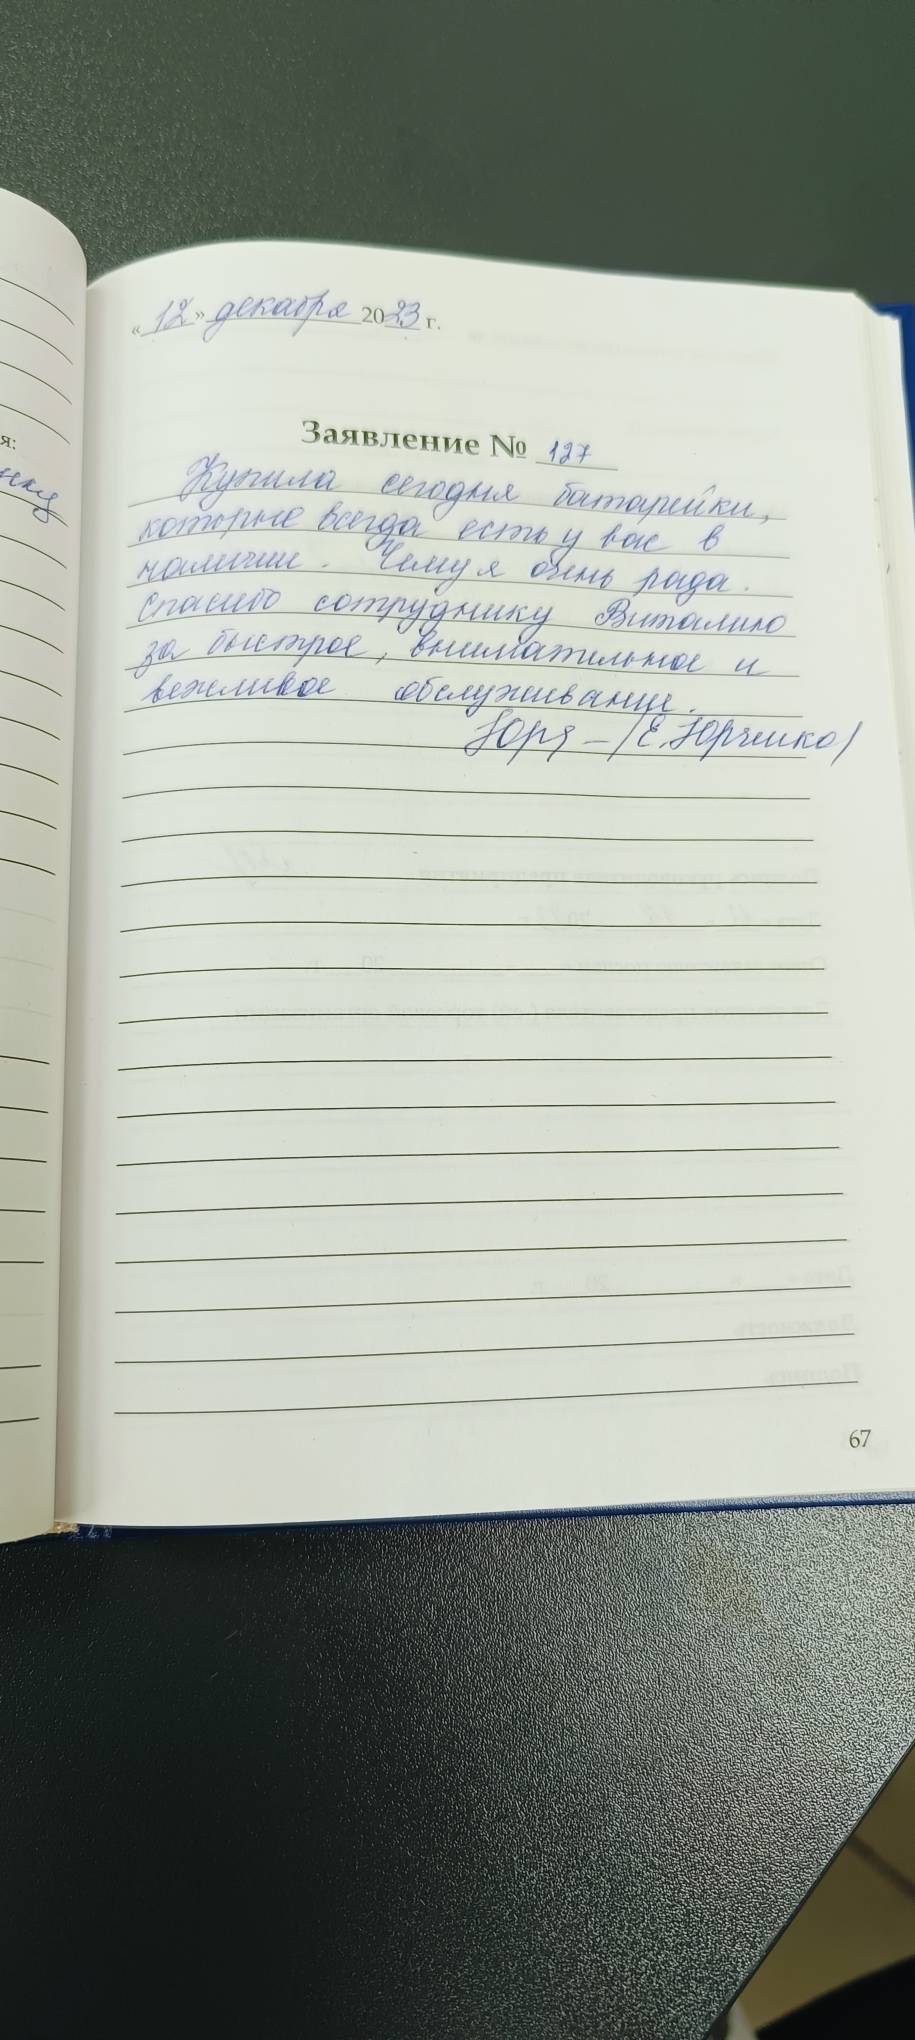 я:
«12» декабря 2023 г.
Заявление № 127
Купила сегодня батарейки,
которые всегда есть у вас в
наличии. Чему я очень рада.
Спасибо сотруднику Виталию
за быстрое, внимательное и
вежливое обслуживание.
(Е. Юрченко)
67